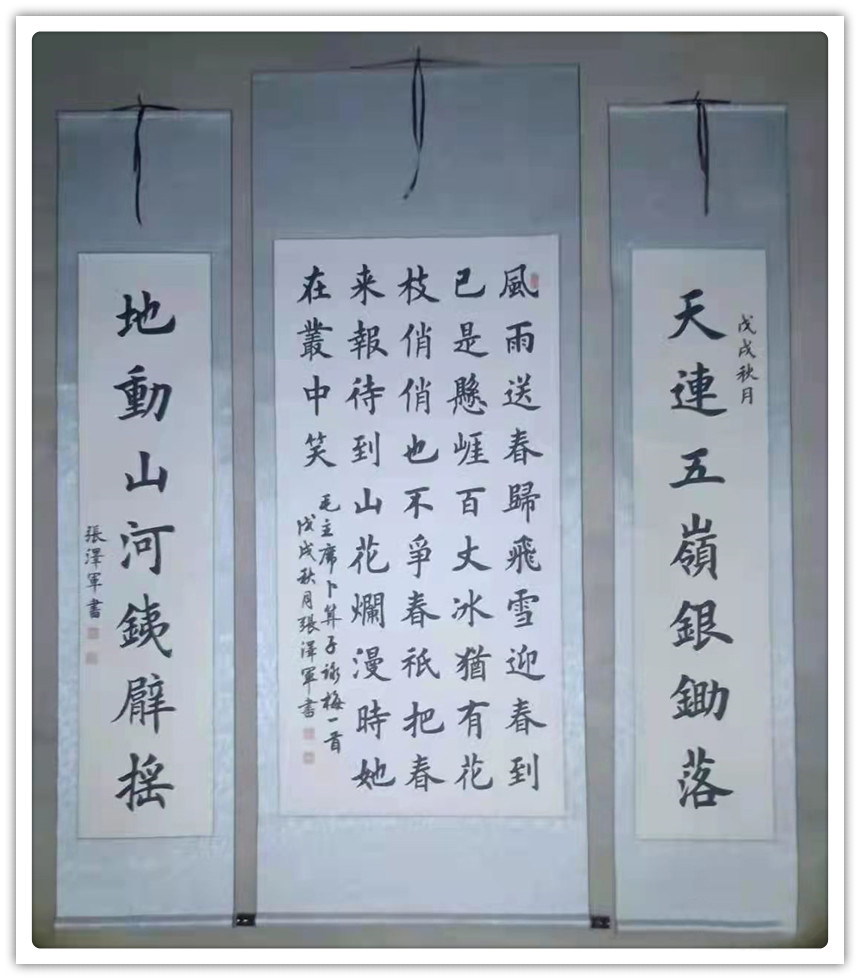 戊戌秋月
天連五嶺銀鋤落
風雨送春歸飛雪迎春到
已是懸崕百丈冰猶有花
枝俏俏也不爭春祇把春
来報待到山花爛漫時她
在叢中笑
毛主席卜算子詠梅一首
戊戌秋月張澤軍書
地動山河銕臂摇
張澤軍書